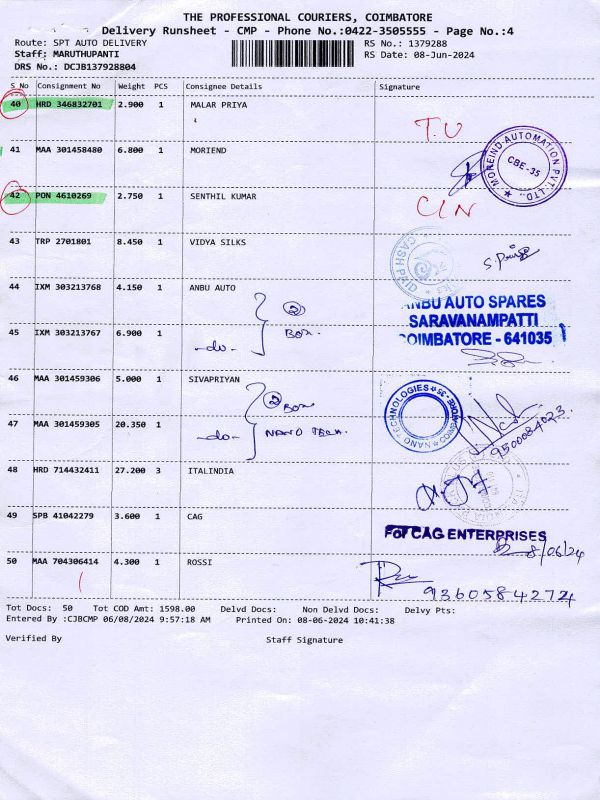 THE PROFESSIONAL COURIERS, COIMBATORE
Delivery Runsheet - CMP - Phone No.:0422-3505555 - Page No.:4
Route: SPT AUTO DELIVERY RS No.: 1379288
Staff: MARUTHUPANTI RS Date: 08-Jun-2024
DRS No.: DCJB137928804
S No Consignment No Weight PCS Consignee Details Signature
40 HRD 346832701 2.900 1 MALAR PRIYA
T.U
41 MAA 301458480 6.800 1 MORIEND
MOREIND AUTOMATION PVT. LTD.,
CBE-35
42 PON 4610269 2.750 1 SENTHIL KUMAR
C/N
43 TRP 2701801 8.450 1 VIDYA SILKS
CASH PAID
44 IXM 303213768 4.150 1 ANBU AUTO
2 Box.
ANBU AUTO SPARES
SARAVANAMPATTI
COIMBATORE - 641035
45 IXM 303213767 6.900 1 -do-
46 MAA 301459306 5.000 1 SIVAPRIYAN
2 Box
NANO TECHNOLOGIES
47 MAA 301459305 20.350 1 -do- NANO TECH.
9500084023.
48 HRD 714432411 27.200 3 ITALINDIA
49 SPB 41042279 3.600 1 CAG
For CAG ENTERPRISES
8/06/24
50 MAA 704306414 4.300 1 ROSSI
9360584274
Tot Docs: 50 Tot COD Amt: 1598.00 Delvd Docs: Non Delvd Docs: Delvy Pts:
Entered By :CJBCMP 06/08/2024 9:57:18 AM Printed On: 08-06-2024 10:41:38
Verified By Staff Signature